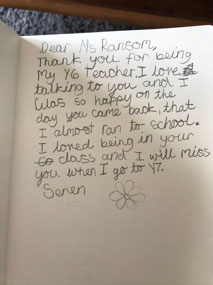 Dear Ms Ransom,
Thank you for being
My Y6 Teacher. I love
talking to you and I
was so happy on the
day you came back, that
I almost ran to school.
I loved being in your
class and I will miss
you when I go to Y7.
Seren